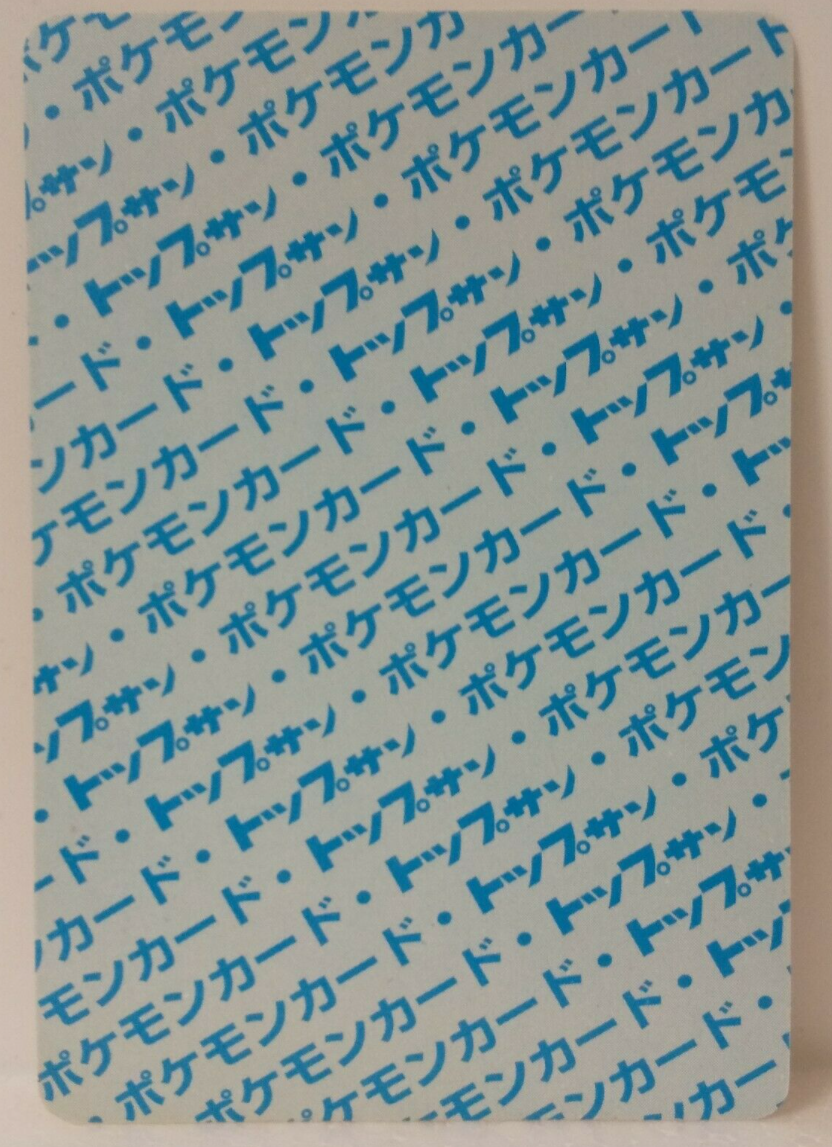 ケモ
・ポケモン
サン・ポケモン
ップサン・ポケモンカ
・トップサン・ポケモンカー
ード・トップサン・ポケモンカード
ンカード・トップサン・ポケモンカード
ケモンカード・トップサン・ポケモンカ
・ポケモンカード・トップサン・ポケモ
サン・ポケモンカード・トップサン・ポケ
ップサン・ポケモンカード・トップサン・
・トップサン・ポケモンカード・トップサ
ード・トップサン・ポケモンカード・トッ
ンカード・トップサン・ポケモンカード・
モンカード・トップサン・ポケモンカー
ポケモンカード・トップサン・ポケモン
ポケモンカード・トップサン・ポケ
ポケモンカード・トップサン・
ポケモンカード・トップサ
ケモンカード・トッ
モンカード・
カー